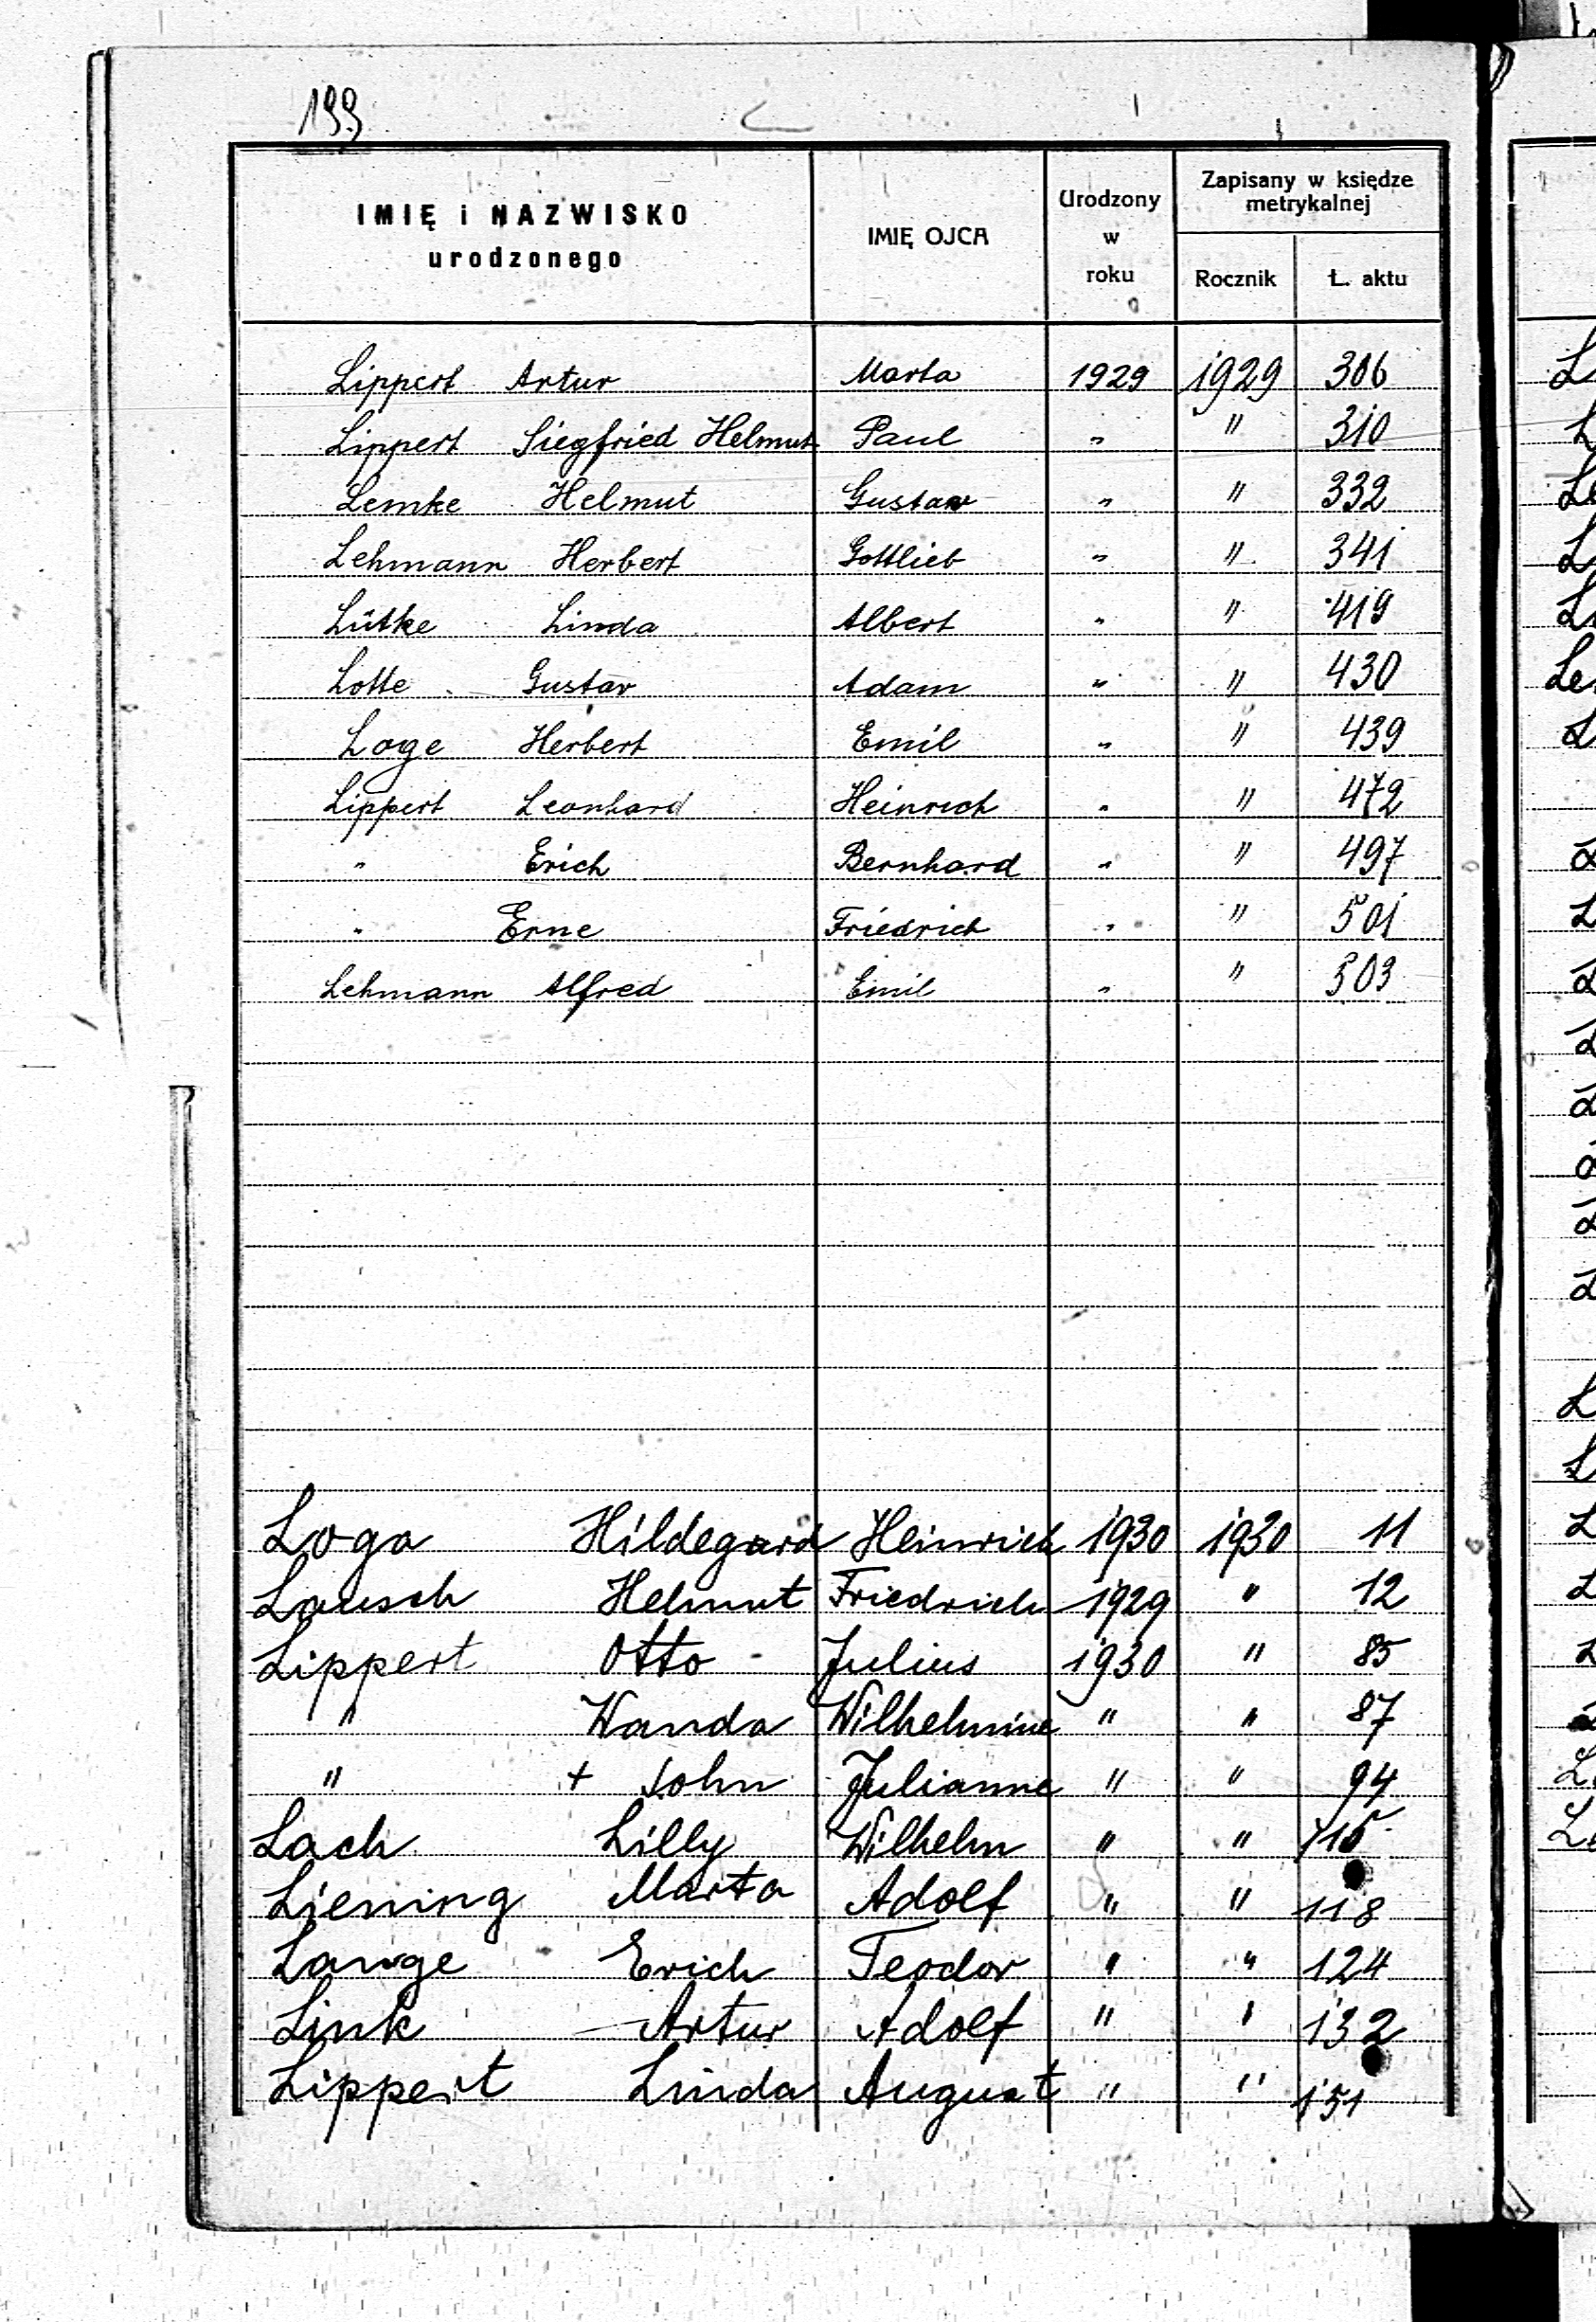 199
IMIĘ i NAZWISKO urodzonego IMIĘ OJCA Urodzony w roku Zapisany w księdze metrykalnej
Rocznik Ł. aktu
Lippert Artur Marta 1929 1929 306
Lippert Siegfried Helmut Paul " " 310
Lemke Helmut Gustaw " " 332
Lehmann Herbert Gottlieb " " 341
Lütke Linda Albert " " 419
Lotte Gustav Adam " " 430
Loge Herbert Emil " " 439
Lippert Leonhard Heinrich " " 472
" Erich Bernhard " " 497
" Erne Friedrich " " 501
Lehmann Alfred Emil " " 503
Loga Hildegard Heinrich 1930 1930 11
Lausch Helmut Friedrich 1929 " 12
Lippert Otto Julius 1930 " 85
" Wanda Wilhelmine " " 87
" + Sohn Julianne " " 94
Lach Lilly Wilhelm " " 115
Liening Marta Adolf " " 118
Lange Erich Teodor " " 124
Link Artur Adolf " " 132
Lippert Linda August " " 151